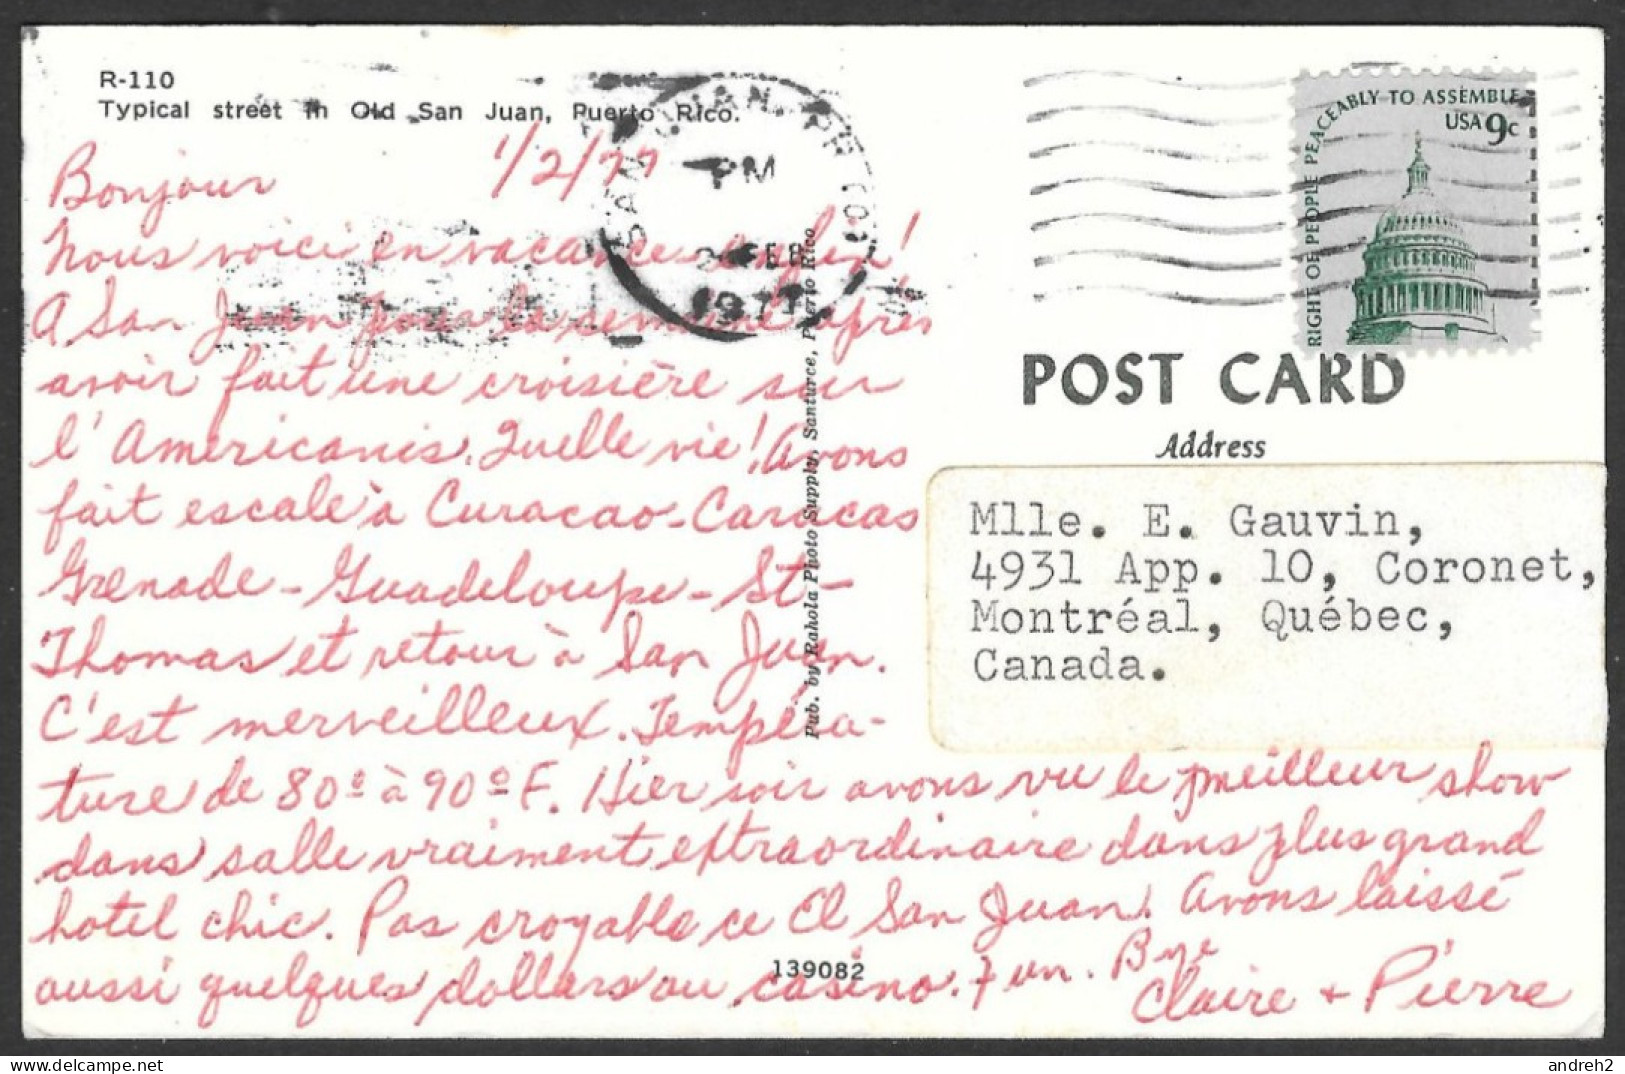 R-110
Typical street in Old San Juan, Puerto Rico.
1/2/77
Bonjour
Nous voici en vacances enfin!
A San Juan pour la semaine après
avoir fait une croisière sur
l'Americanis. Quelle vie! Avons
fait escale à Curacao-Caracas
Grenade-Guadeloupe-St-
Thomas et retour à San Juan.
C'est merveilleux. Tempéra-
ture de 80º à 90º F. Hier soir avons vu le meilleur show
dans salle vraiment extraordinaire dans plus grand
hotel chic. Pas croyable ce El San Juan. Avons laissé
aussi quelques dollars au casino. Fun. Bye
Claire + Pierre
139082
Pub. by Rahola Photo Supply, Santurce, Puerto Rico
SAN JUAN, P
PM
FEB
1977
RIGHT OF PEOPLE PEACEABLY TO ASSEMBLE
USA 9c
POST CARD
Address
Mlle. E. Gauvin,
4931 App. 10, Coronet,
Montréal, Québec,
Canada.
andreh2